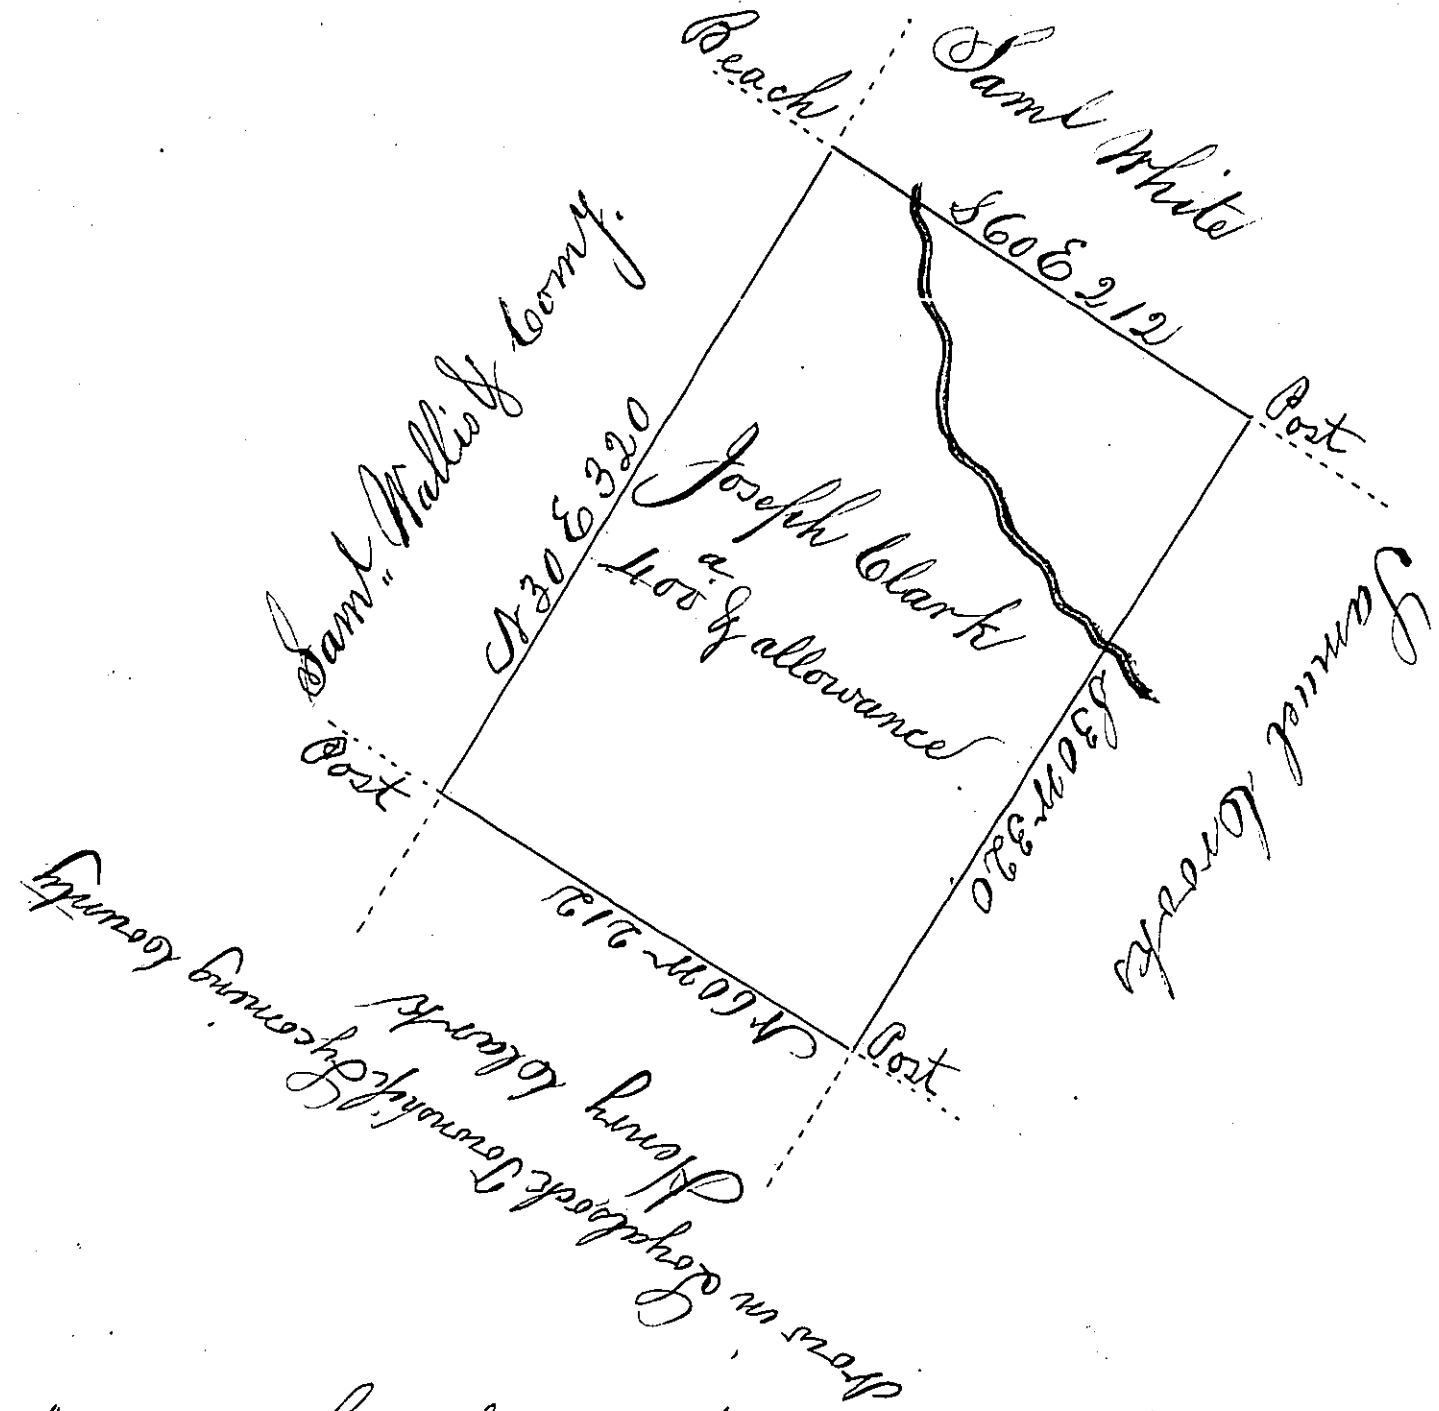 Beach
Saml White
S 60 E 212
Post
Saml. Wallis & Comy.
N 30 E 320
Joseph Clark
400 a & allowance
S 30 W 320
Samuel Crooks
Post
Post
N 60 W 212
Henry Clark
now in Loyalsock Township Lycoming County